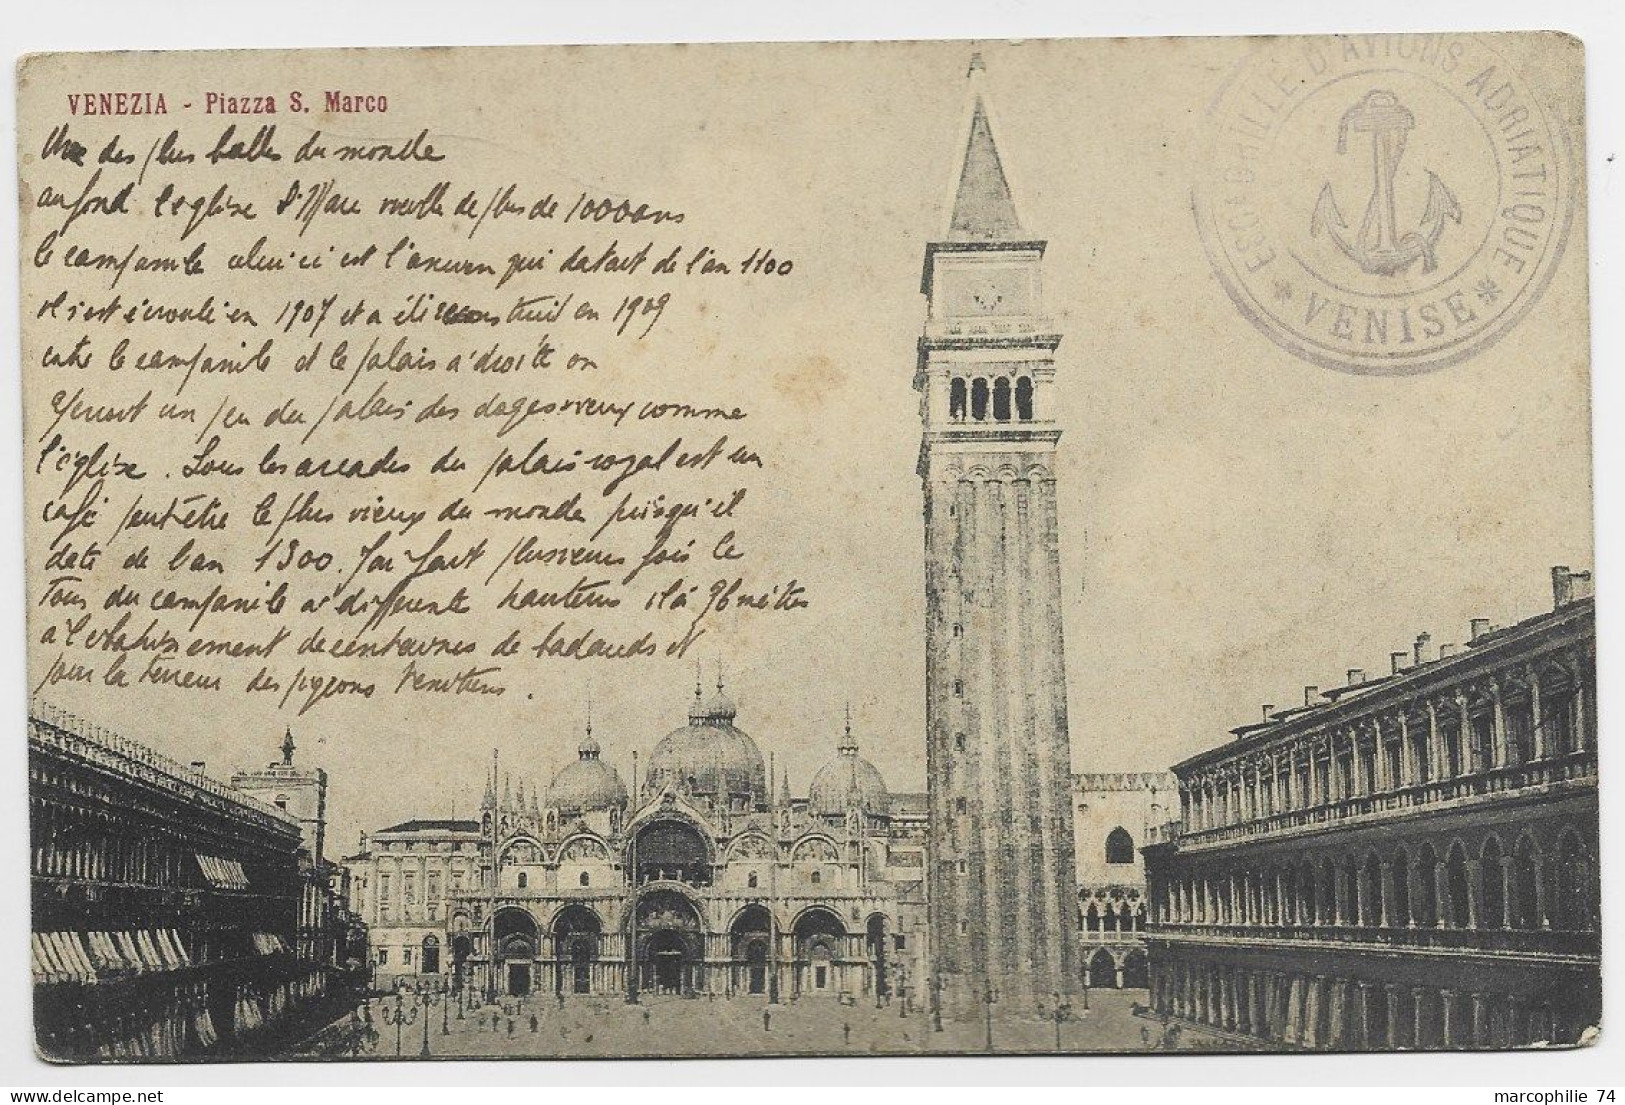 VENEZIA - Piazza S. Marco
ESCADRILLE D'AVIONS ADRIATIQUE
* VENISE *
Une des plus belles du monde
au fond l'eglise St Marc vieille de plus de 1000 ans
le campanile celui ci est l'ancien qui datait de l'an 1100
il s'est écroulé en 1907 et a été reconstruit en 1909
entre le campanile et le palais a droite on
aperçoit un peu du palais des doges vieux comme
l'église. Sous les arcades du palais royal est un
café peut-être le plus vieux du monde puisqu'il
date de l'an 1300. J'ai fait plusieurs fois le
Tour du campanile a differente hauteurs il à 96 mètres
à l'ebahissement de centaines de badauds et
pour la terreur des pigeons Venitiens.
marcophilie 74